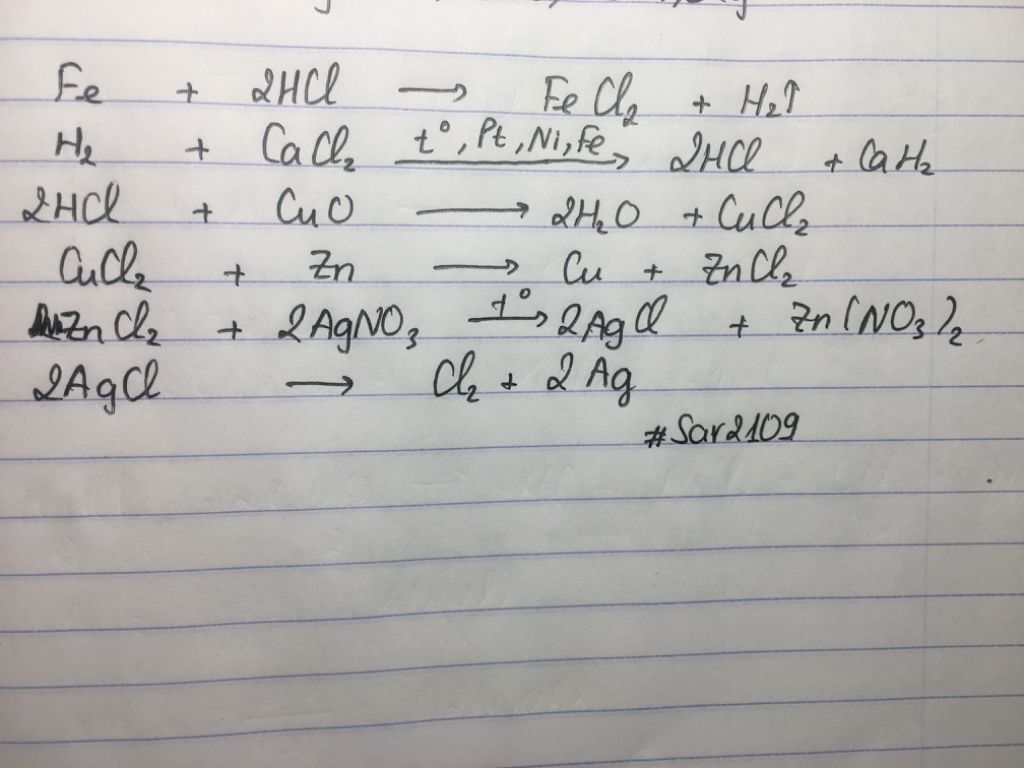 Fe + 2HCl → FeCl₂ + H₂↑
H₂ + CaCl₂ t°, Pt, Ni, Fe → 2HCl + CaH₂
2HCl + CuO → 2H₂O + CuCl₂
CuCl₂ + Zn → Cu + ZnCl₂
ZnCl₂ + 2AgNO₃ t° → 2AgCl + Zn(NO₃)₂
2AgCl → Cl₂ + 2Ag
#Sar2109